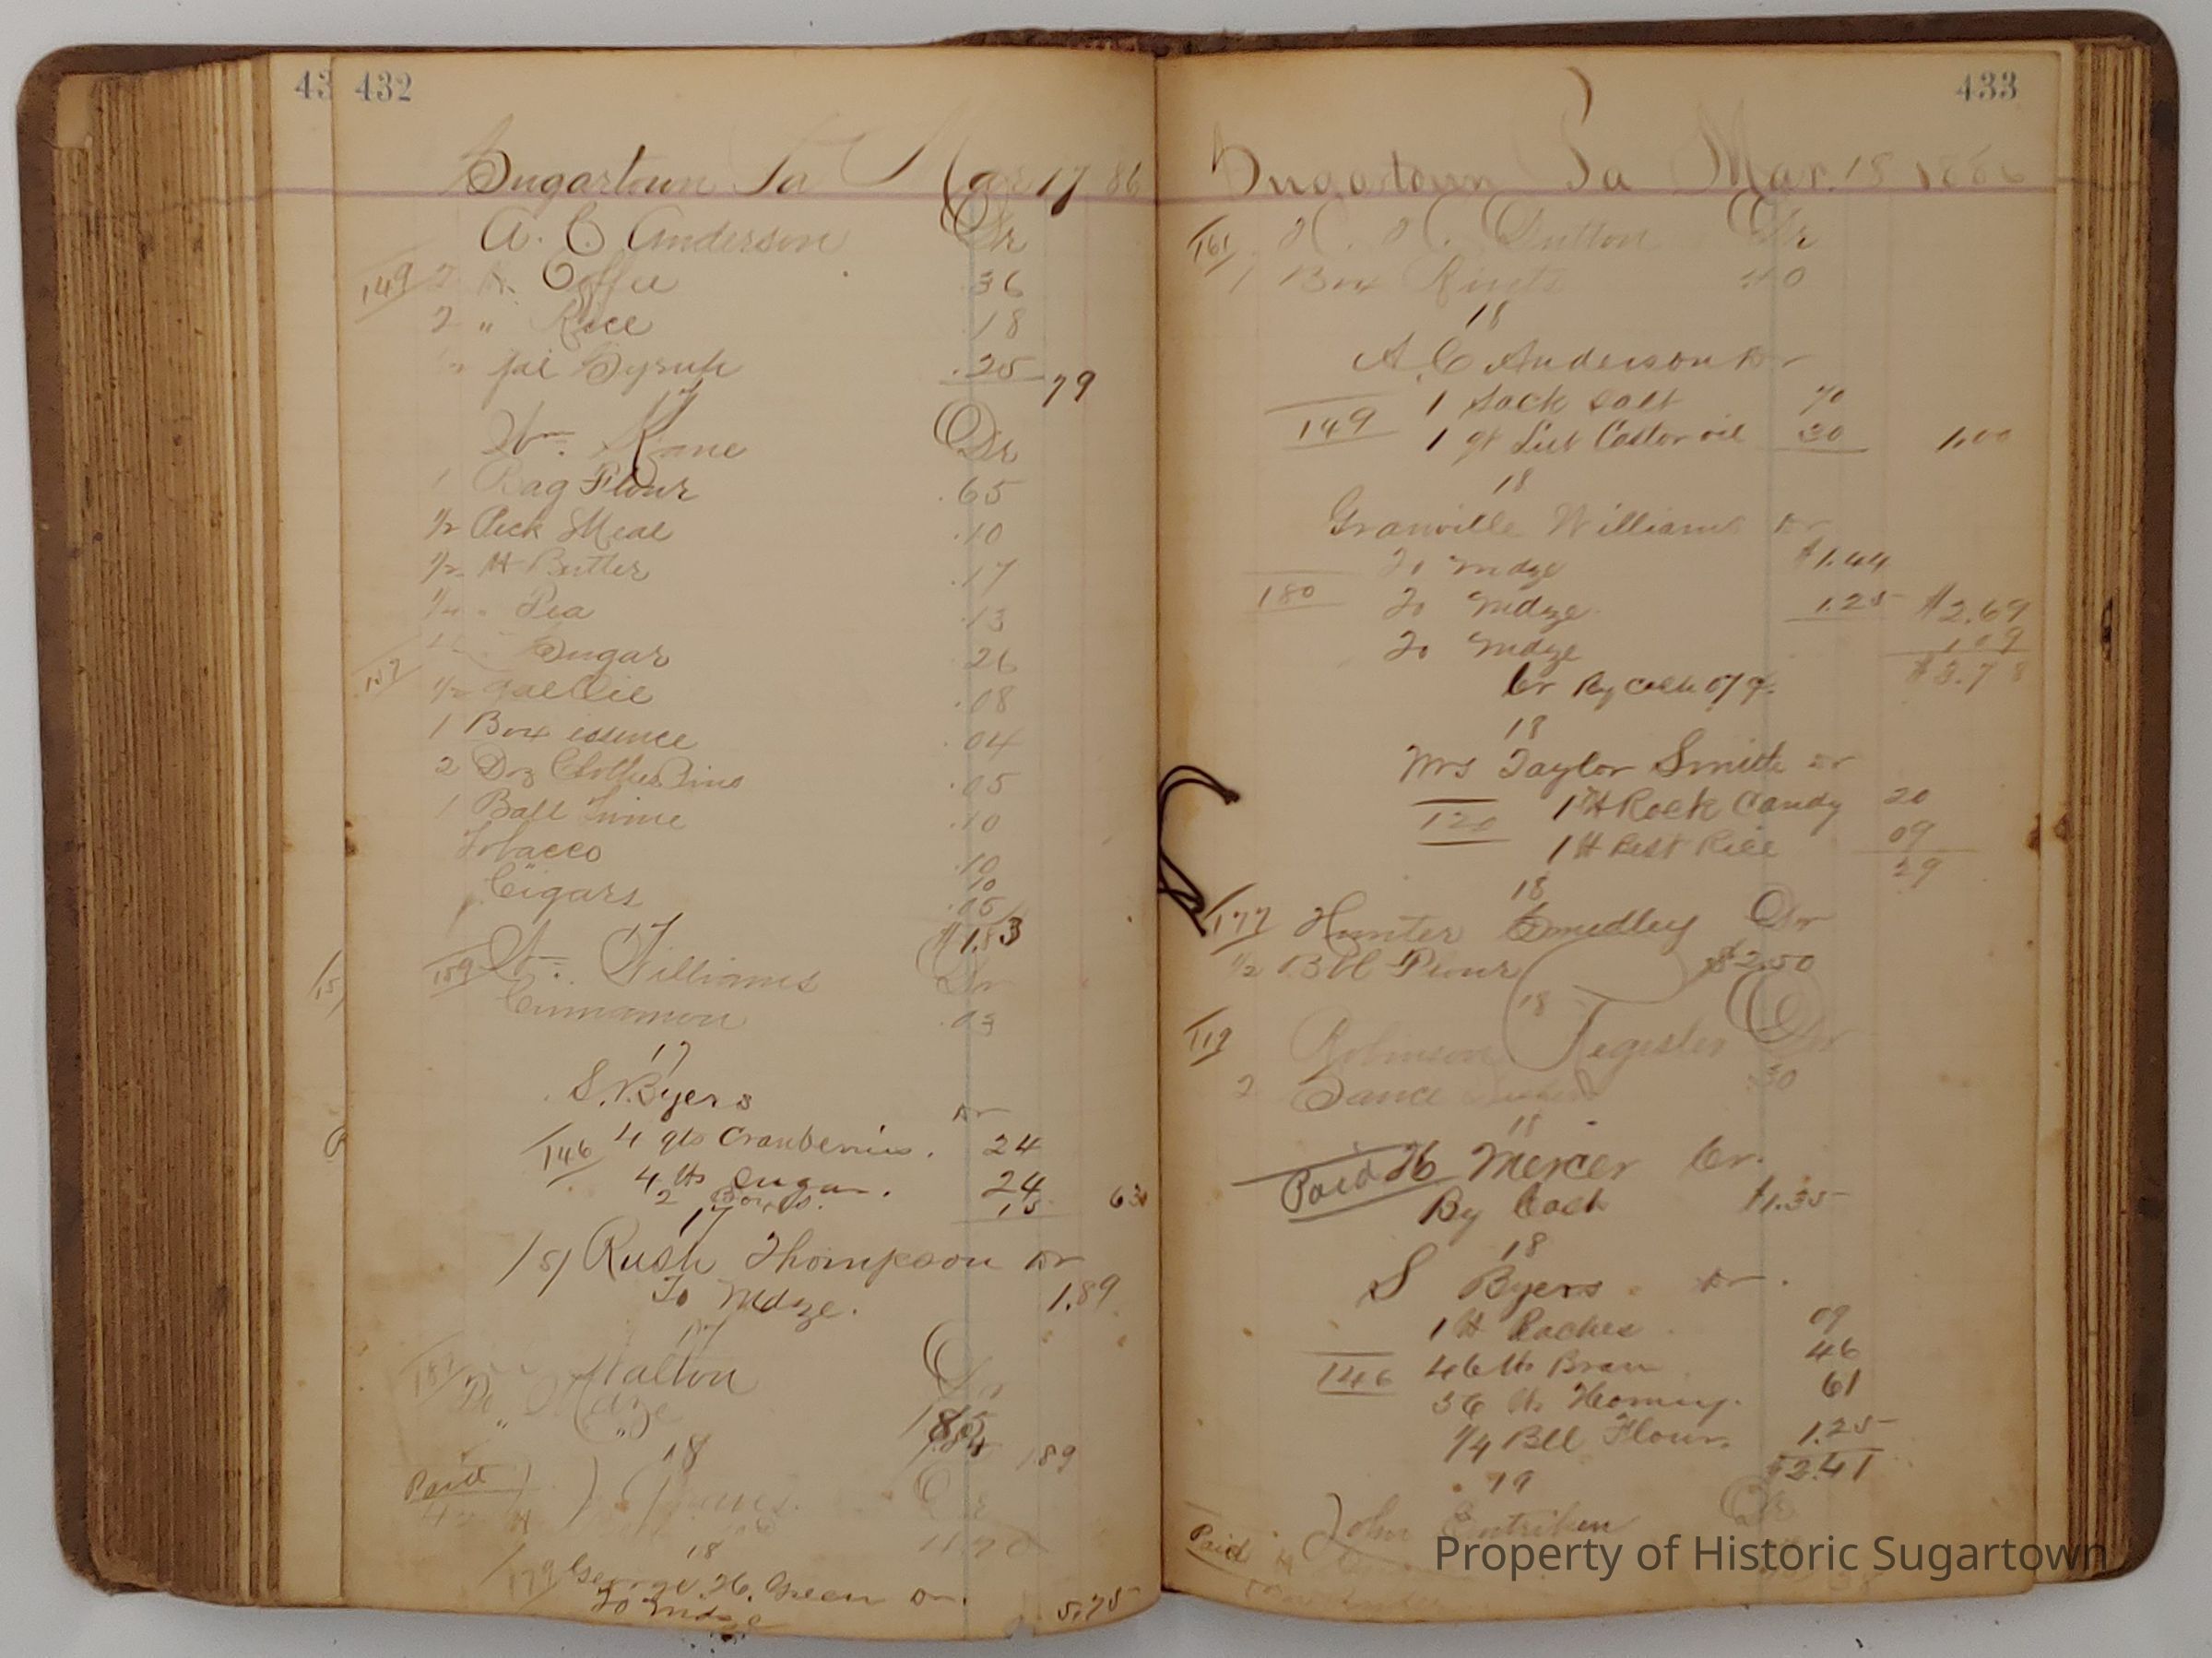 43 432
Sugartown Pa Mar 17 86
A. C. Anderson Dr
149 2 lb. Coffee .36
2 " Rice .18
gal Syrup .25 79
17
Wm. Kane Dr
1 Bag Flour .65
1/2 Peck Meal .10
1/2 lb Butter .17
1/4 " Tea .13
Sugar .26
157 1/2 gal Oil .08
1 Box essence .04
2 Doz Clothes Pins .05
1 Ball Twine .10
Tobacco .10
10
Cigars .05
$1.83
17
159 Wm. Williams Dr
Cinnamon .03
17
S. Byers Dr
146 4 qts Cranberries. 24
4 lbs Sugar. 24
2 15 63
17
151 Rush Thompson Dr
To Mdze. 1.89
17
181 Malton Dr
To Mdze
" " 189
18
Paid Dr
18
179 George H. Green Dr.
To Mdze 5.75
433
Sugartown Pa Mar. 18 1886
161 H. H. Dutton Dr
1 Box Rivets .40
18
A. C Anderson Dr
1 Sack Salt 70
149 1 qt Lub Castor oil 30 1.00
18
Granville Williams Dr
To Mdze $1.44
180 To Mdze 1.25 $2.69
To Mdze 1.09
$3.78
Cr By Cash
18
Mrs Taylor Smith Dr
120 1 lb Rock Candy 20
1 lb Best Rice 09
29
18
177 Hunter Smedley Dr
1/2 Bbl Flour $2.50
18
119 Robinson Register Dr
2 Sauce .30
18
Paid H Mercer Cr.
By Cash $1.35
18
S Byers. Dr.
1 lb Peaches 09
146 46 lbs Bran 46
56 lbs Hominy. 61
1/4 Bbl Flour. 1.25
$2.41
19
John Entriken Dr
Paid
Property of Historic Sugartown